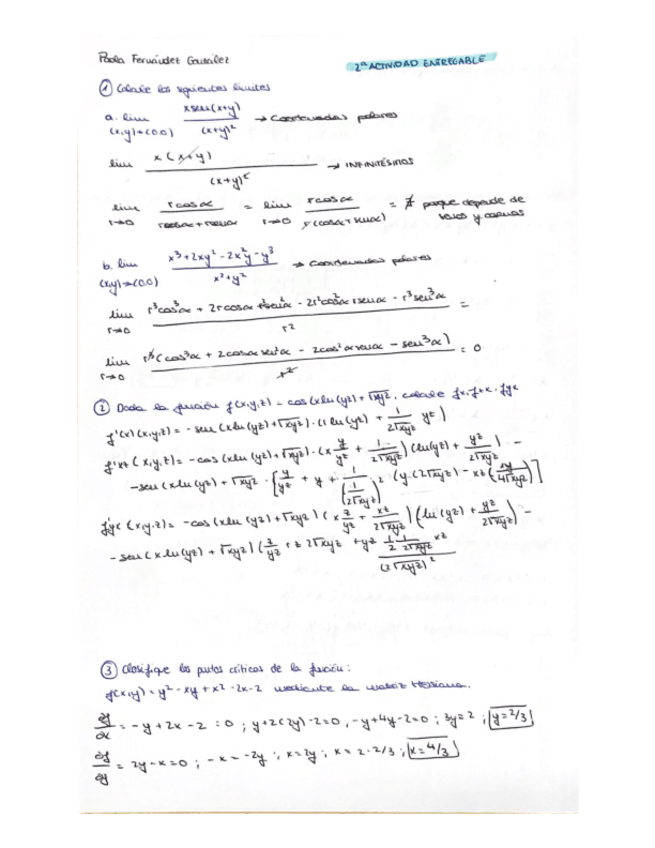 Paola Fernández González
2ª ACTIVIDAD ENTREGABLE
① Calcule los siguientes límites
a. lim x sen(x+y) / (x+y)² → Coordenadas polares
(x,y)→(0,0)
lim x(x+y) / (x+y)² → INFINITÉSIMOS
lim r→0 r cos α / r cos α + r sen α = lim r→0 r cos α / r(cos α + sen α) = ∄ porque depende de
senos y cosenos
b. lim x³+2xy²-2x²y-y³ / x²+y² → Coordenadas polares
(x,y)→(0,0)
lim r→0 r³cos³α + 2r cos α r²sen²α - 2r²cos²α r sen α - r³sen³α / r² =
lim r→0 r³(cos³α + 2cos α sen²α - 2cos²α sen α - sen³α) / r² = 0
② Dada la función f(x,y,z) = cos(x ln(yz)+√xyz, calcule
f'(x)(x,y,z) = -sen(x ln(yz)+√xyz)·(1 ln(yz) + 1/2√xyz yz)
f'xz(x,y,z) = -cos(x ln(yz)+√xyz)·(x y/yz + 1/2√xyz)(ln(yz) + yz/2√xyz) -
-sen(x ln(yz)+√xyz ·
f'yx(x,y,z) = -cos(x ln(yz)+√xyz)(x z/yz + xz/2√xyz)(ln(yz) + yz/2√xyz) -
-sen(x ln(yz)+√xyz)(z/yz + z 2√xyz + yz 1/2 1/2√xyz xz / (2√xyz)²
③ Clasifique los puntos críticos de la función:
f(x,y) = y²-xy+x²-2x-2 mediante la matriz Hessiana.
∂f/∂x = -y+2x-2=0; y+2(2y)-2=0, -y+4y-2=0; 3y=2; y=2/3
∂f/∂y = 2y-x=0; -x=-2y; x=2y; x=2·2/3; x=4/3